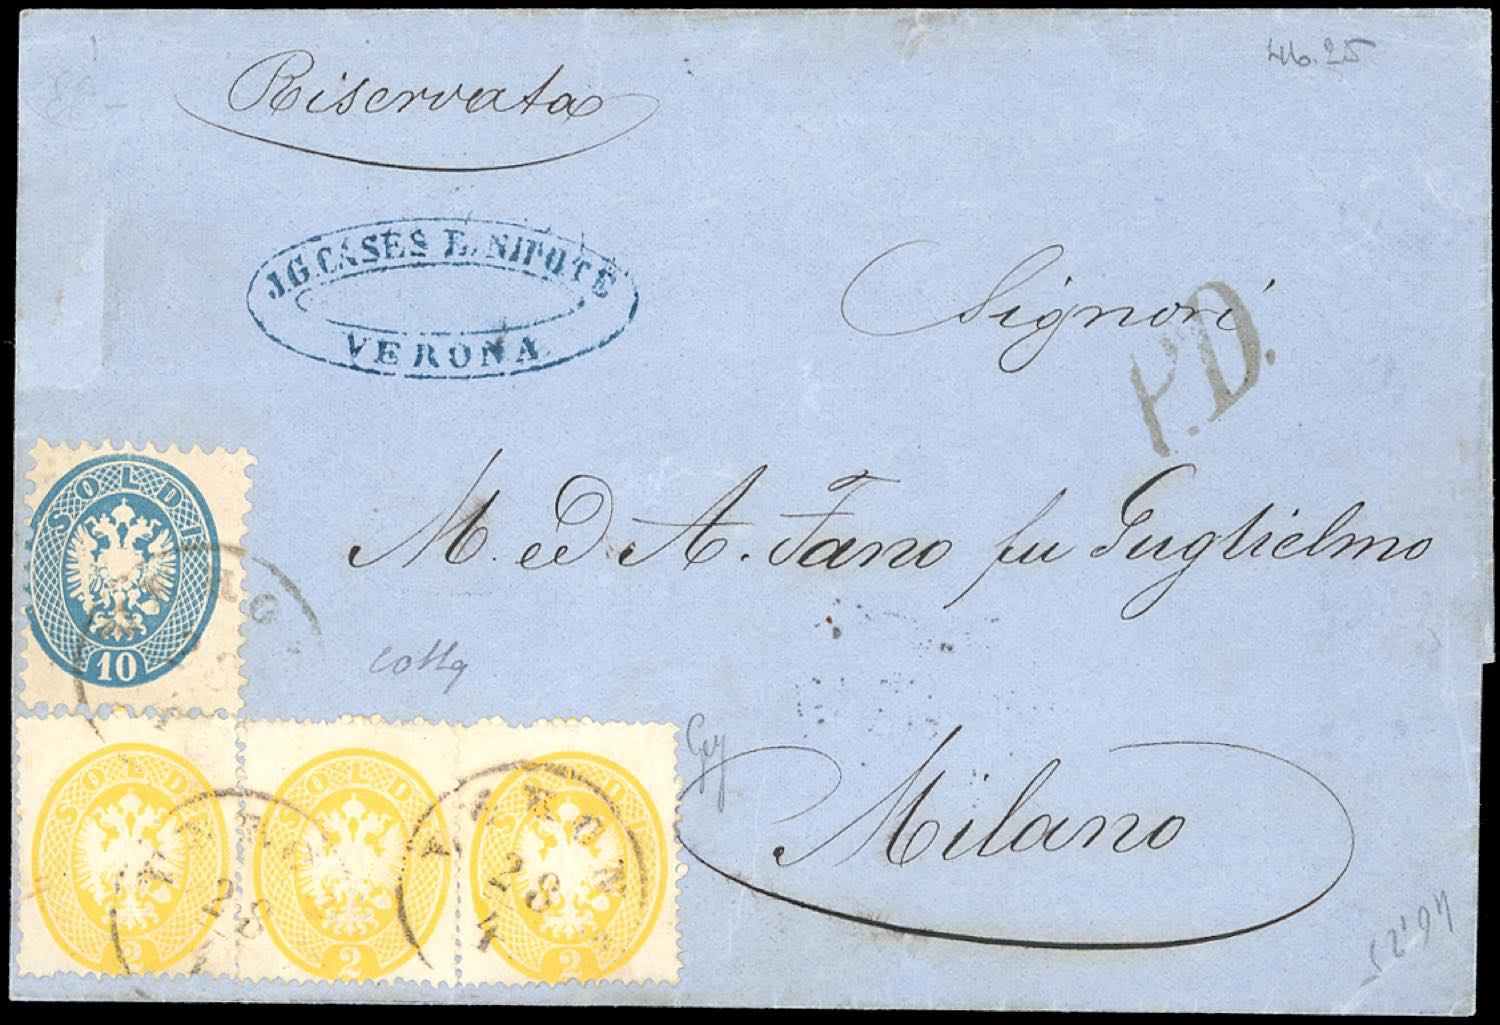 46.25
Riservata
J.G. CASES E. NIPOTE
VERONA
Signori
P.D.
M. ed A. Fano fu Guglielmo
SOLDI
10
Milano
SOLDI
2
SOLDI
2
SOLDI
2
VERONA
28
VERONA
28
4